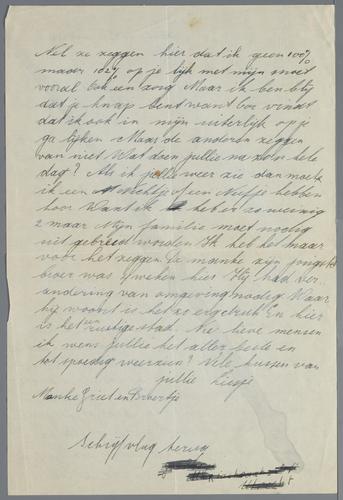 Nel ze zeggen hier dat ik geen 100%
maar 102% op je lijk met mijn snoet
vooral. Ook een zorg Maar ik ben blij
dat je knap bent want Cor vindt
dat ik ook in mijn uiterlijk op je
ga lijken Maar de anderen zeggen
van niet. Wat doen jullie nu zoo de hele
dag? Als ik jullie weer zie dan moet
ik een nichtje of een Neefje hebben
hoor Want ik heb er zo weinig
2 maar Mijn familie moet nodig
uit gebreid worden Ik heb het maar
voor het zeggen. De manke zijn jongste
broer was 4 weken hier Hij had ver
andering van omgeving nodig Waar
hij woont is het zo ergedruk En hier
is het een rustige stad. Nu lieve mensen
ik wens jullie het aller beste en
tot spoedig weerzien? Vele kussen van
jullie Liesje
Manke Griet en Broertje
Schrijf vlug terug